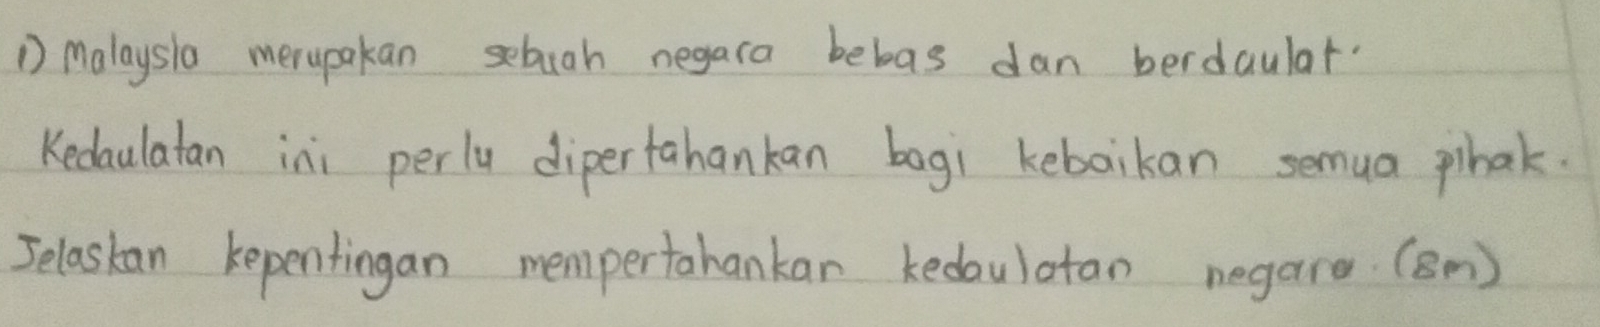 1) Malaysia merupakan sebuah negara bebas dan berdaulat.
Kedaulatan ini perlu dipertahankan bagi kebaikan semua pihak.
Jelaskan kepentingan mempertahankan kedaulatan negara. (8m)